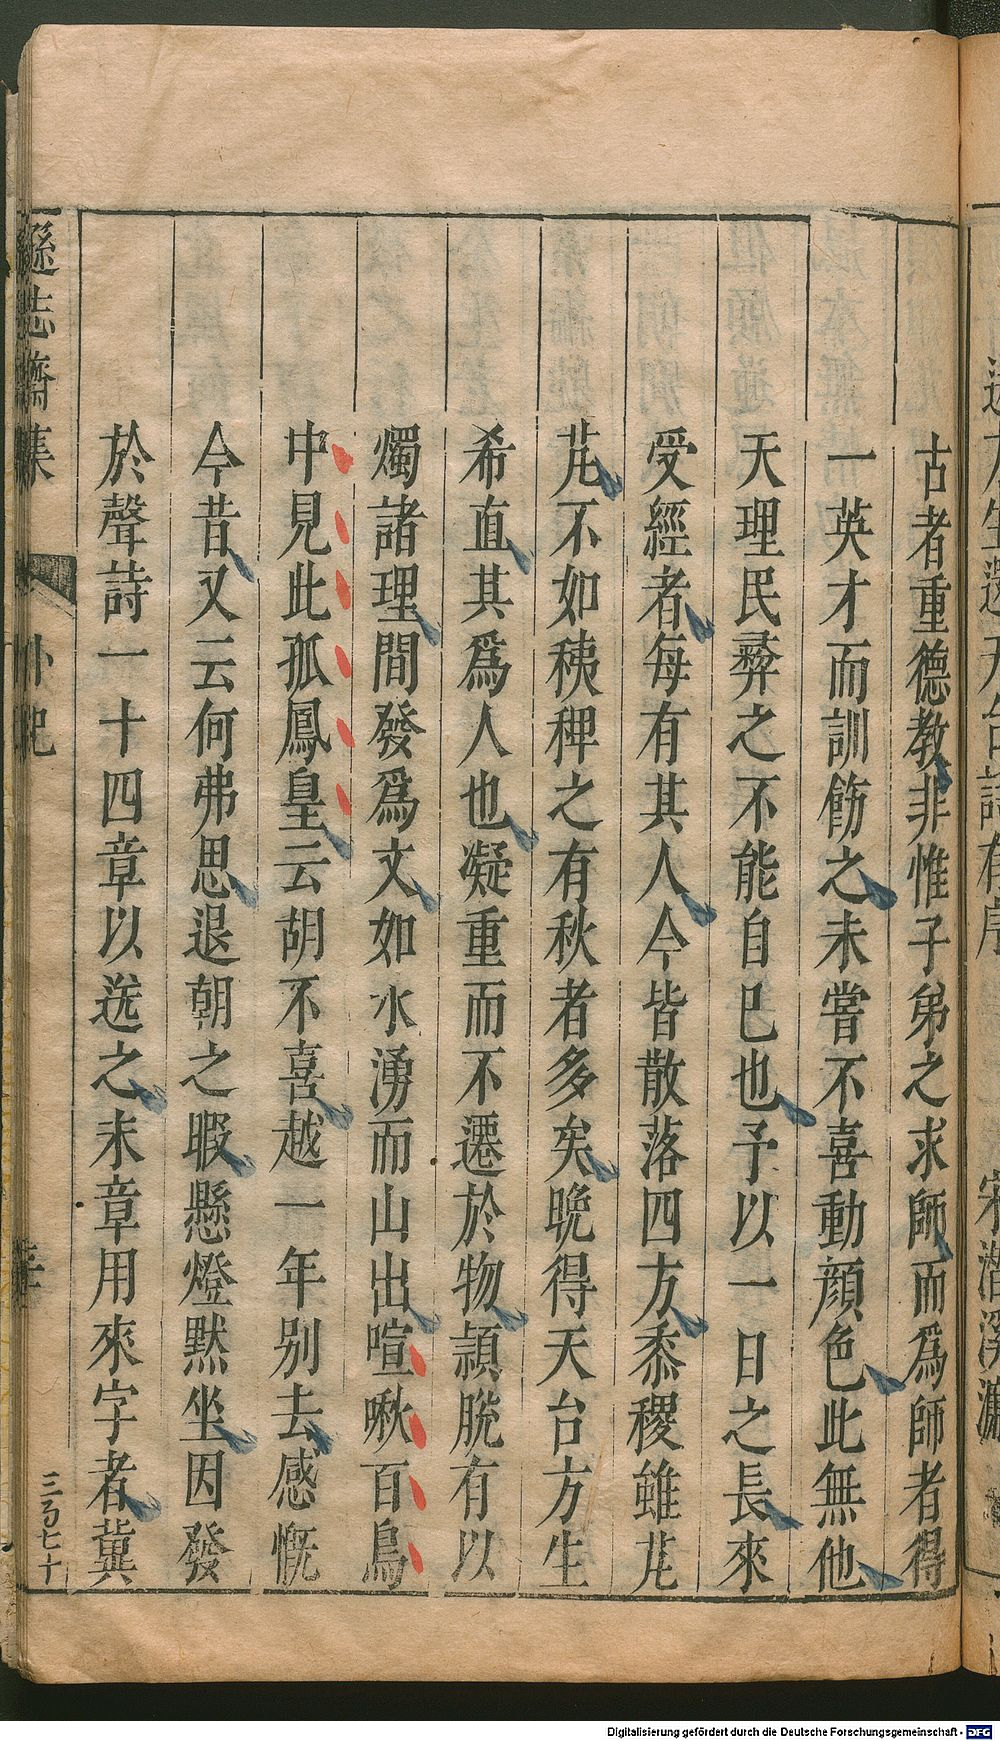 古者重德教非惟子弟之求師而爲師者得
一英才而訓飭之未嘗不喜動顔色此無他
天理民彛之不能自已也予以一日之長來
受經者每有其人今皆散落四方黍稷雖芃
芃不如稊稗之有秋者多矣晚得天台方生
希直其爲人也凝重而不遷於物頴脫有以
燭諸理間發爲文如水湧而山出喧啾百鳥
中見此孤鳳皇云胡不喜越一年别去感慨
今昔又云何弗思退朝之暇懸燈默坐因發
於聲詩一十四章以送之未章用來字者冀
遜志齋集
外紀
三百七十
Digitalisierung gefördert durch die Deutsche Forschungsgemeinschaft - DFG